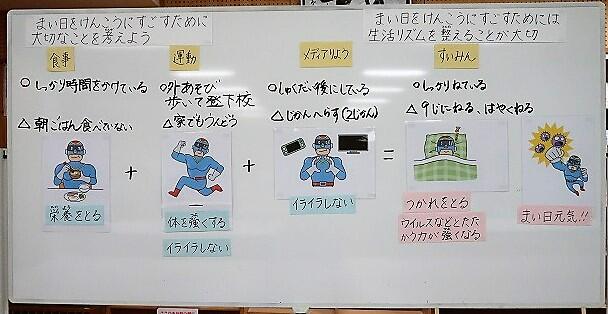 まい日をけんこうにすごすために
大切なことを考えよう
まい日をけんこうにすごすためには
生活リズムを整えることが大切
食事
運動
メディアりよう
すいみん
○しっかり時間をかけている
○外あそび
歩いて登下校
○しゅくだい後にしている
○しっかりねている
△朝ごはん食べていない
△家でもうんどう
△じかんへらす(2じかん)
△9じにねる、はやくねる
+
+
=
栄養をとる
体を強くする
イライラしない
イライラしない
つかれをとる
ウイルスなどとたた
かう力が強くなる
まい日元気!!